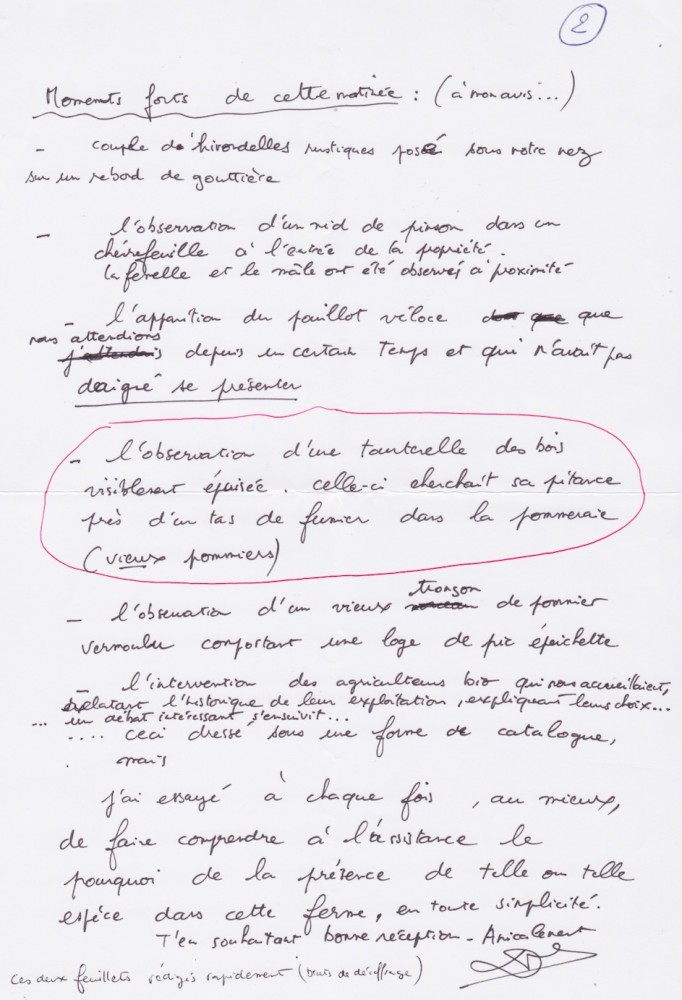 2
Moments forts de cette matinée : (à mon avis...)
- couple d'hirondelles rustiques posé sous notre nez
sur un rebord de gouttière
- l'observation d'un nid de pinson dans un
chèvrefeuille à l'entrée de la propriété.
la femelle et le mâle ont été observés à proximité
- l'apparition du pouillot véloce que
nous attendions
j'attendais depuis un certain temps et qui n'avait pas
daigné se présenter
- l'observation d'une tourterelle des bois
visiblement épuisée. celle-ci cherchait sa pitance
près d'un tas de fumier dans la pommeraie
(vieux pommiers)
- l'observation d'un vieux tronçon de pommier
vermoulu comportant une loge de pic épeichette
- l'intervention des agriculteurs bio qui nous accueillaient,
relatant l'historique de leur exploitation, expliquant leurs choix...
... un débat intéressant s'ensuivit...
.... ceci dressé sous une forme de catalogue,
mais
j'ai essayé à chaque fois, au mieux,
de faire comprendre à l'assistance le
pourquoi de la présence de telle ou telle
espèce dans cette ferme, en toute simplicité.
T'en souhaitant bonne réception - Amicalement
ces deux feuillets rédigés rapidement (